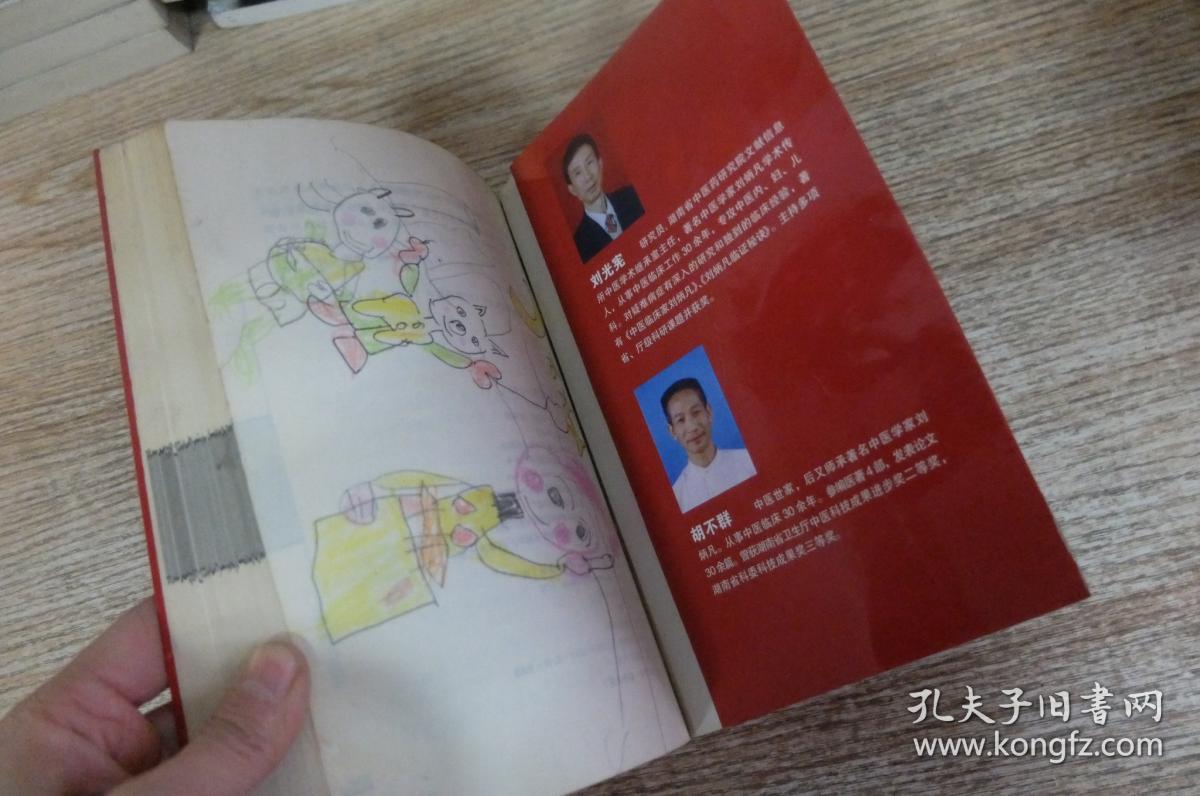 刘光宪
研究员,湖南省中医药研究院文献信息
所中医学术继承室主任,著名中医学家刘炳凡学术传
人,从事中医临床工作30余年,专攻中医内、妇、儿
科。对疑难病症有深入的研究和独到的临床经验,著
有《中医临床家刘炳凡》、《刘炳凡临证秘诀》。主持多项
省、厅级科研课题并获奖。
胡不群
中医世家,后又师承著名中医学家刘
炳凡。从事中医临床30余年。参编医著4部,发表论文
30余篇。曾获湖南省卫生厅中医科技成果进步奖二等奖,
湖南省科委科技成果奖三等奖。
孔夫子旧书网
www.kongfz.com